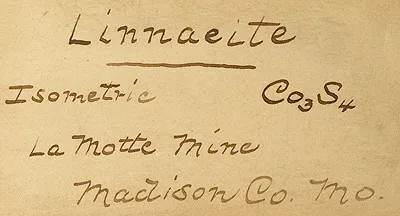 Linnaeite
Isometric Co₃S₄
La Motte Mine
Madison Co. Mo.